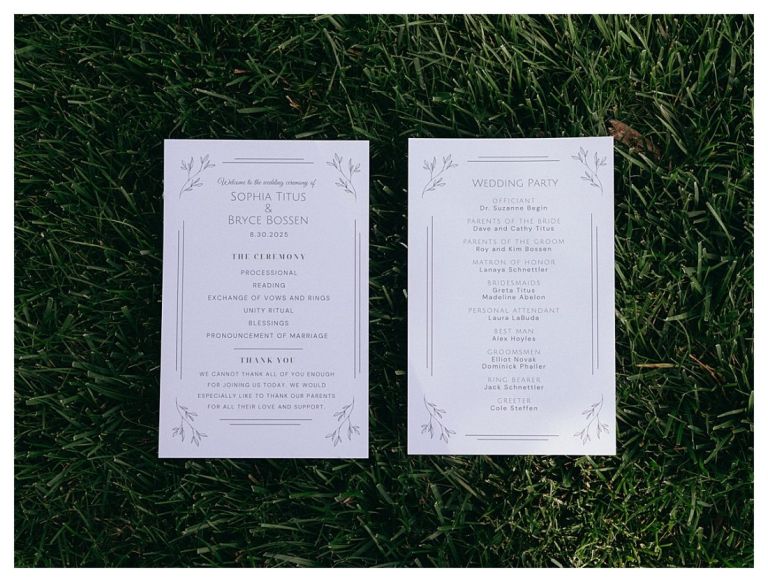 Welcome to the wedding ceremony of
Sophia Titus
&
Bryce Bossen
8.30.2025
THE CEREMONY
PROCESSIONAL
READING
EXCHANGE OF VOWS AND RINGS
UNITY RITUAL
BLESSINGS
PRONOUNCEMENT OF MARRIAGE
THANK YOU
WE CANNOT THANK ALL OF YOU ENOUGH
FOR JOINING US TODAY. WE WOULD
ESPECIALLY LIKE TO THANK OUR PARENTS
FOR ALL THEIR LOVE AND SUPPORT.
Wedding Party
OFFICIANT
Dr. Suzanne Begin
PARENTS OF THE BRIDE
Dave and Cathy Titus
PARENTS OF THE GROOM
Roy and Kim Bossen
MATRON OF HONOR
Lanaya Schnettler
BRIDESMAIDS
Greta Titus
Madeline Abelon
PERSONAL ATTENDANT
Laura LaBuda
BEST MAN
Alex Hoyles
GROOMSMEN
Elliot Novak
Dominick Phaller
RING BEARER
Jack Schnettler
GREETER
Cole Steffen